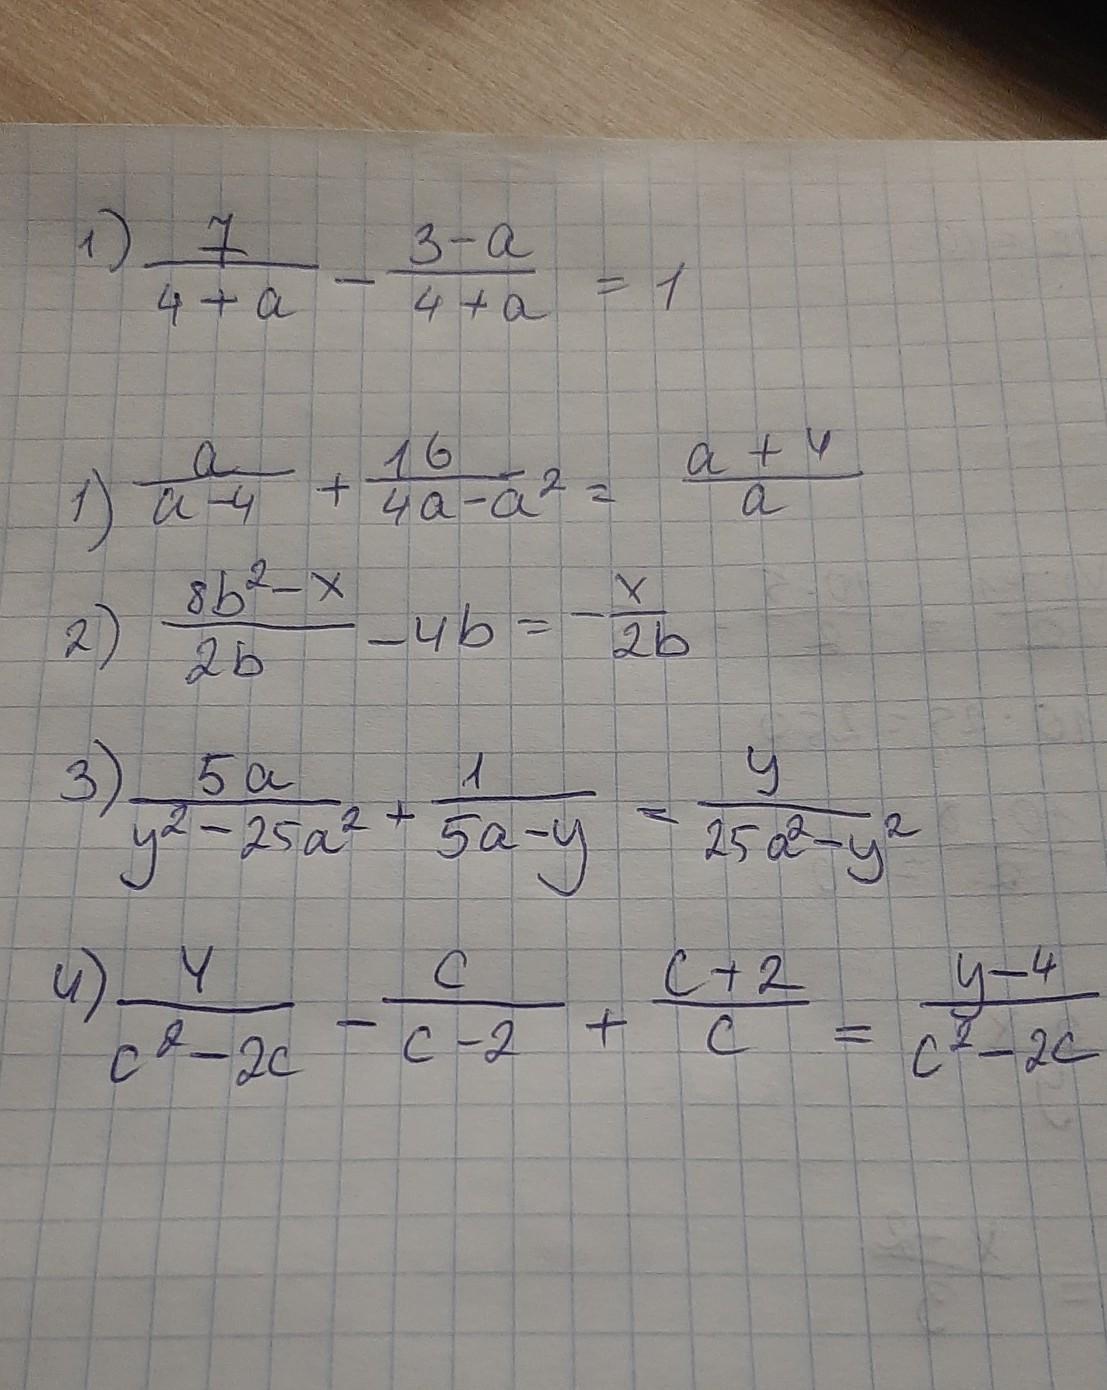 1) 7/(4+a) - (3-a)/(4+a) = 1
1) a/(a-4) + 16/(4a-a²) = (a+4)/a
2) (8b²-x)/(2b) - 4b = -x/(2b)
3) 5a/(y²-25a²) + 1/(5a-y) = y/(25a²-y²)
4) y/(c²-2c) - c/(c-2) + (c+2)/c = (y-4)/(c²-2c)